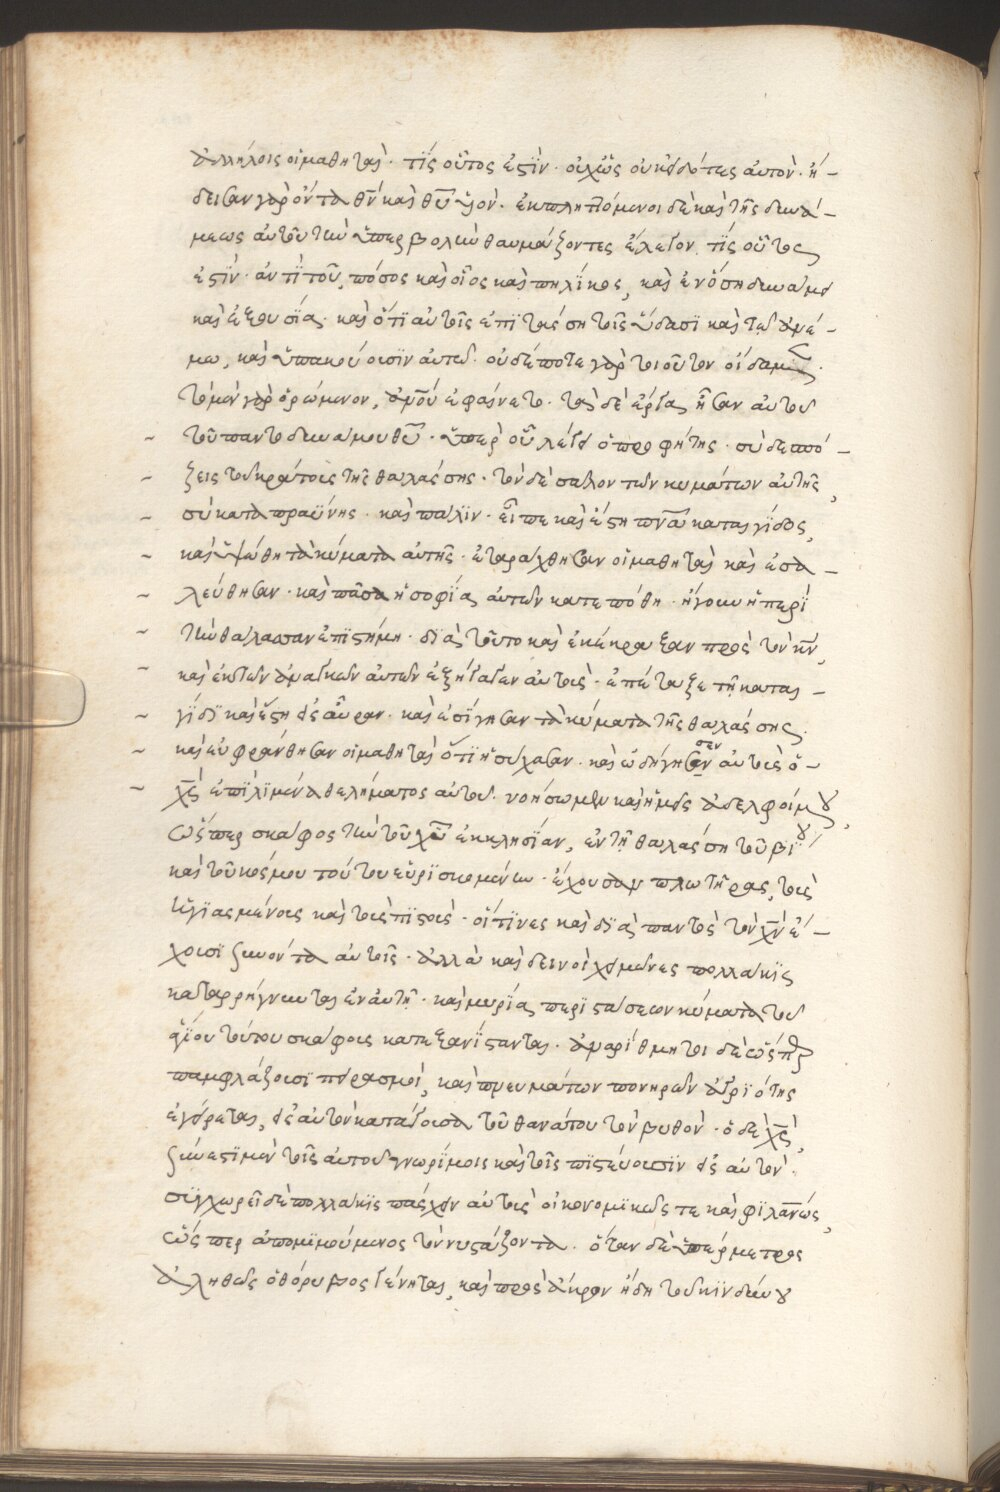 ἀλλήλοις οἱ μαθηταὶ· τίς οὗτός ἐστιν· οὐχ ὡς οὐκ εἰδότες αὐτὸν· ἤ-
δεισαν γὰρ ὄντα θν̄ καὶ θῡ υἱόν· ἐκπληττόμενοι δὲ καὶ τῆς δυνά-
μεως αὐτοῦ τὴν ὑπερβολὴν θαυμάζοντες ἔλεγον τίς οὗτος
ἐστίν· ἀντὶ τοῦ, πόσος καὶ οἷος καὶ πηλίκος, καὶ ἐν ὅσῃ δυνάμει
καὶ ἐξουσίᾳ· καὶ ὅτι αὐτοῖς ἐπιτάσση τοῖς ὕδασι καὶ τῷ ἀνέ-
μω, καὶ ὑπακούουσιν αὐτῷ· οὐδέποτε γὰρ τοιοῦτον οἴδαμεν·
τὸ μὲν γὰρ ὁρώμενον, ἀν̄ού ἐφαίνετο· τὰ δὲ ἔργα ἦσαν αὐτοῦ
τοῦ παντοδυνάμου θῡ· ὑπὲρ οὗ λέγει ὁ προφήτης· σὺ δεσπό-
ζεις τοῦ κράτους τῆς θαλάσσης· τὸν δὲ σάλον τῶν κυμάτων αὐτῆς,
σὺ καταπραΰνης· καὶ πάλιν· εἶπε καὶ ἔστη πν̄α καταιγίδος,
καὶ ὑψώθη τὰ κύματα αὐτῆς· ἐταράχθησαν οἱ μαθηταὶ καὶ ἐσα-
λεύθησαν· καὶ πᾶσα ἡ σοφία αὐτῶν κατεπόθη· ἤγουν ἡ περὶ
τὴν θάλασσαν ἐπιστήμη· διὰ τοῦτο καὶ ἐκέκραξαν πρὸς τὸν κν̄,
καὶ ἐκ τῶν ἀναγκῶν αὐτῶν ἐξήγαγεν αὐτοὺς· ἐπέταξε τῇ καται-
γίδι καὶ ἔστη εἰς αὔραν· καὶ ἐσίγησαν τὰ κύματα τῆς θαλάσσης.
καὶ εὐφράνθησαν οἱ μαθηταὶ ὅτι ἡσύχασαν· καὶ ὡδήγησεν αὐτοὺς ὁ
χς̄ ἐπὶ λιμένα θελήματος αὐτοῦ· νοήσωμεν καὶ ἡμεῖς ἀδελφοί μου,
ὥσπερ σκάφος τὴν τοῦ χῡ ἐκκλησίαν, ἐν τῇ θαλάσσῃ τοῦ βίου
καὶ τοῦ κόσμου τούτου εὑρισκομένην· ἔχουσαν πλωτῆρας, τοὺς
ἡγιασμένους καὶ τοὺς πιστοὺς· οἵτινες καὶ διὰ παντὸς τὸν χν̄ ἔ-
χουσι συνόντα αὐτοῖς· ἀλλὰ καὶ δεινοὶ χειμῶνες πολλάκις
καταρρήγνυνται ἐν αὐτῇ· καὶ μυρία περιστάσεων κύματα τοῦ
ἁγίου τούτου σκάφους κατεξανίστανται· ἀναρίθμητοι δὲ ὥσπερ
παμφλάζουσι πειρασμοί, καὶ πνευμάτων πονηρῶν ἀγριότης
ἐγείρεται, εἰς αὐτὸν κατάγουσα τοῦ θανάτου τὸν βυθὸν· ὁ δὲ χς̄,
σύνεστι μὲν τοῖς αὐτοῦ γνωρίμοις καὶ τοῖς πιστεύουσιν εἰς αὐτὸν·
συγχωρεῖ δὲ πολλάκις πάσχειν αὐτοὺς οἰκονομικῶς τε καὶ φιλαν̄ως,
ὥσπερ ἀπομιμούμενος τὸν νυστάζοντα· ὅταν δὲ ὑπέρμετρος
ἀληθῶς ὁ θόρυβος γένηται, καὶ πρὸς ἄκρον ἤδη τοῦ κινδύνου